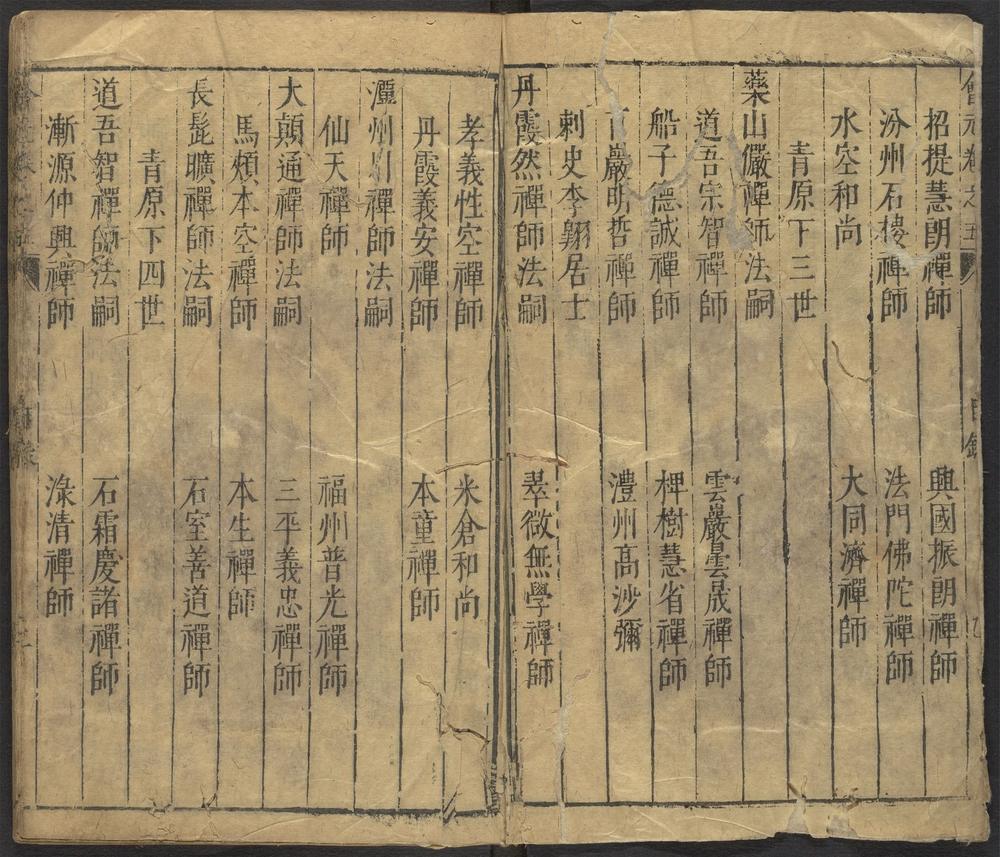 會元卷之五 目錄
招提慧朗禪師 興國振朗禪師
汾州石樓禪師 法門佛陀禪師
水空和尚 大同濟禪師
青原下三世
藥山儼禪師法嗣
道吾宗智禪師 雲巖曇晟禪師
船子德誠禪師 椑樹慧省禪師
百巖明哲禪師 澧州高沙彌
刺史李翺居士
丹霞然禪師法嗣 翠微無學禪師
孝義性空禪師 米倉和尚
丹霞義安禪師 本童禪師
潭州川禪師法嗣
仙天禪師 福州普光禪師
大顛通禪師法嗣 三平義忠禪師
馬頰本空禪師 本生禪師
長髭曠禪師法嗣 石室善道禪師
青原下四世
道吾智禪師法嗣 石霜慶諸禪師
漸源仲興禪師 淥清禪師